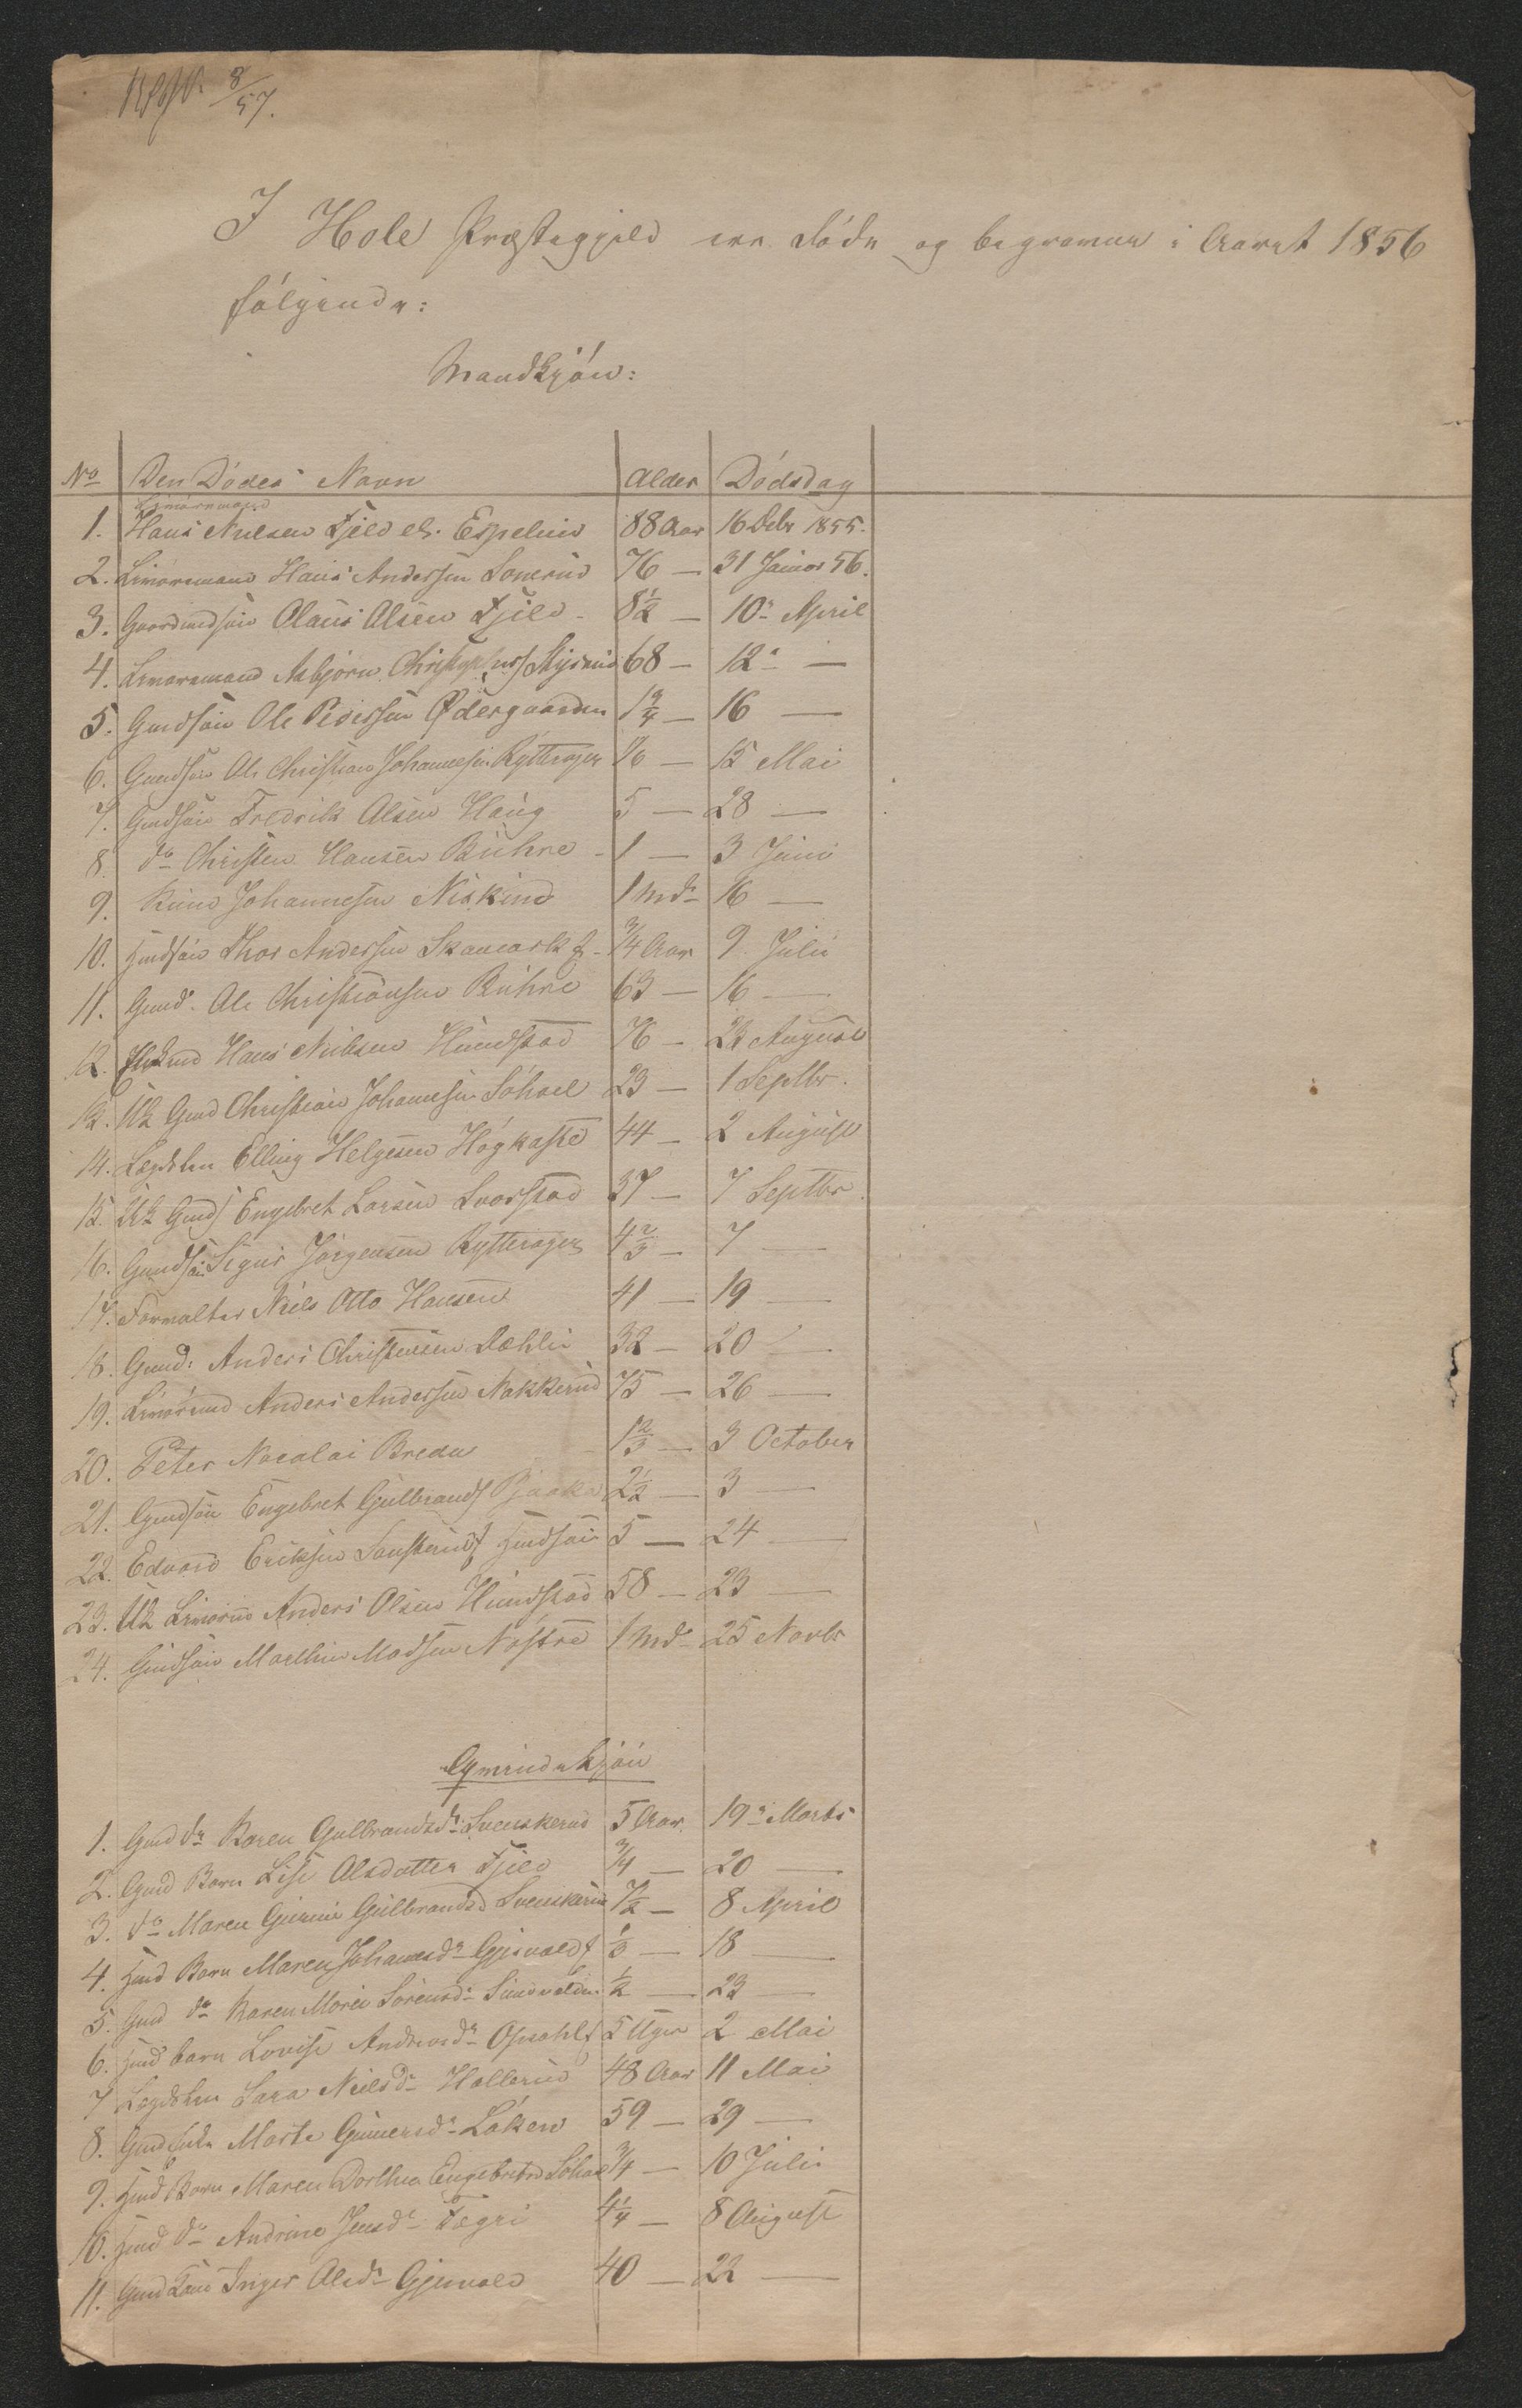 8/57.
I Hole Præstegjeld ere døde og begravne i Aaret 1856
følgende:
Mandkjön:
No Den Dödes Navn Alder Dödsdag
1. Hans Nielsen Fjeld el. Espelien 88 Aar 16 Debr 1855.
2. Livöremand Hans Andersen Lonerud 76 — 31 Januar 56.
3. Gaardmdsön Olaus Olsen Fjeld 8 1/2 — 10de April
4. Livöremand Asbjörn Christophers 68 — 12te —
5. Gmdsön Ole Pedersen Ødergaarden 1 3/4 — 16 —
6. Gmdsön Ole Christian Johannesen Rytterager — 15 Mai
7. Gmdsön Fredrik Olsen Haug 5 — 28 —
8. do Christen Hansen Bühre 1 — 3 Juni
9. Johannesen Niskind 1 Md 16 —
10. Hmdsön Thor Andersen 3/4 Aar 9 Juli
11. Gmd. Ole Christiansen Bühre 63 — 16 —
12. Hans Nielsen Hundstad 76 — 22 August
13. Uk Gmd Christian Johannesen Söhoel 23 — 1 Septbr.
14. Lægdslem Elling Helgesen Högkastet 44 — 2 August
15. Uk Gmds Engebret Larsen Svarstad 37 — 7 Septbr.
16. Gmdsön Sigur Jörgensen Rytterager 4 2/3 — 7 —
17. Forvalter Niels Otto Hansen 41 — 19 —
18. Gmd: Anders Christensen Dæhlie 32 — 20 —
19. Livörmd Anders Andersen Nakkerud 75 — 26 —
20. Peter Nocolai Breda 1 2/3 — 3 October
21. Gmdsön Engebret Gulbrands Bjaaka 2 1/2 — 3 —
22. Edvard Eriksen Hmdsön 5 — 24 —
23. Uk Livörmd Anders Olsen Hundstad 58 — 23 —
24. Gmdsön Marthin Madsen Nöstre 1 Md 25 Novbr
Qvindekjön
1. Gmd dr Karen Gulbrandsdr Svenskerud 5 Aar 19de Marts
2. Gmd Barn Lise Olsdatter Fjeld 3/4 — 20 —
3. do Maren Gulbrandsd Svenskerud 7 1/2 — 8 April
4. Hmd Barn Maren Johannesdr Gjesvold 1/3 — 18 —
5. Gmd dr Karen Marie Sörensdr Sundvolden 1/2 — 23 —
6. Hmd barn Lovise Andreasdr Opsahl 5 Uger 2 Mai
7 Lægdslem Sara Nielsdr Hallerud 48 Aar 11 Mai
8. Gmd Enke Marte Gunnersdr Löken 59 — 29 —
9. Hmd Barn Maren Dorthea Engebretsd Söhoel 3/4 — 10 Juli
10. Hmd dr Andrine Jensdr Fægri 4 1/4 — 8 August
11. Gmd Kone Inger Olsdr Gjesvold 40 — 22 —